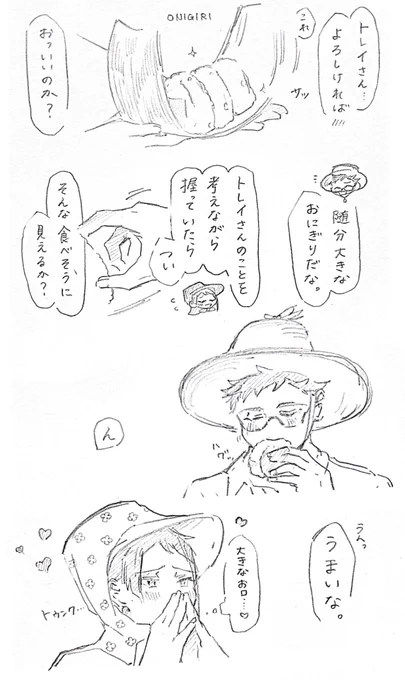 トレイさん…
よろしければ
これ
ONIGIRI
サッ
おっいいのか?
随分大きな
おにぎりだな。
トレイさんのことを
考えながら
握っていたら
つい
そんな食べそうに
見えるか?
バグッ
ん
うんっ
うまいな。
大きなお口…♡
トゥンク…